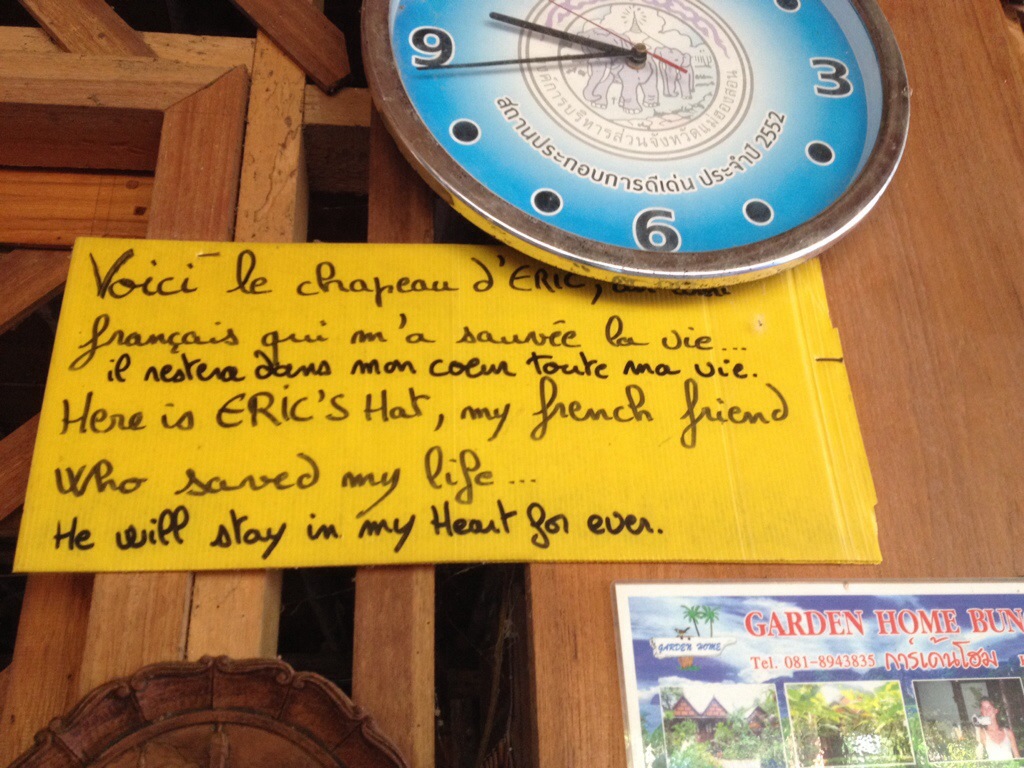 9
3
6
องค์การบริหารส่วนจังหวัดแม่ฮ่องสอน
สถานประกอบการดีเด่น ประจำปี 2552
Voici le chapeau d'ERIC,
français qui m'a sauvée la vie...
il restera dans mon coeur toute ma vie.
Here is ERIC'S Hat, my french friend
who saved my life...
He will stay in my Heart for ever.
GARDEN HOME
GARDEN HOME BUN
Tel. 081-8943835 การ์เด้นโฮม